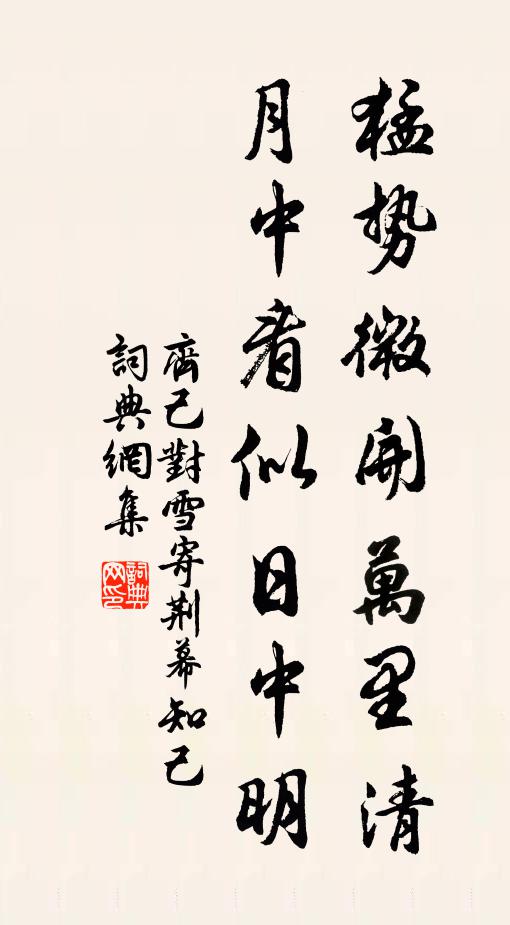 猛勢微開萬里清
月中看似日中明
齊己對雪寄荆幕知己
詞典網集
詞典网印